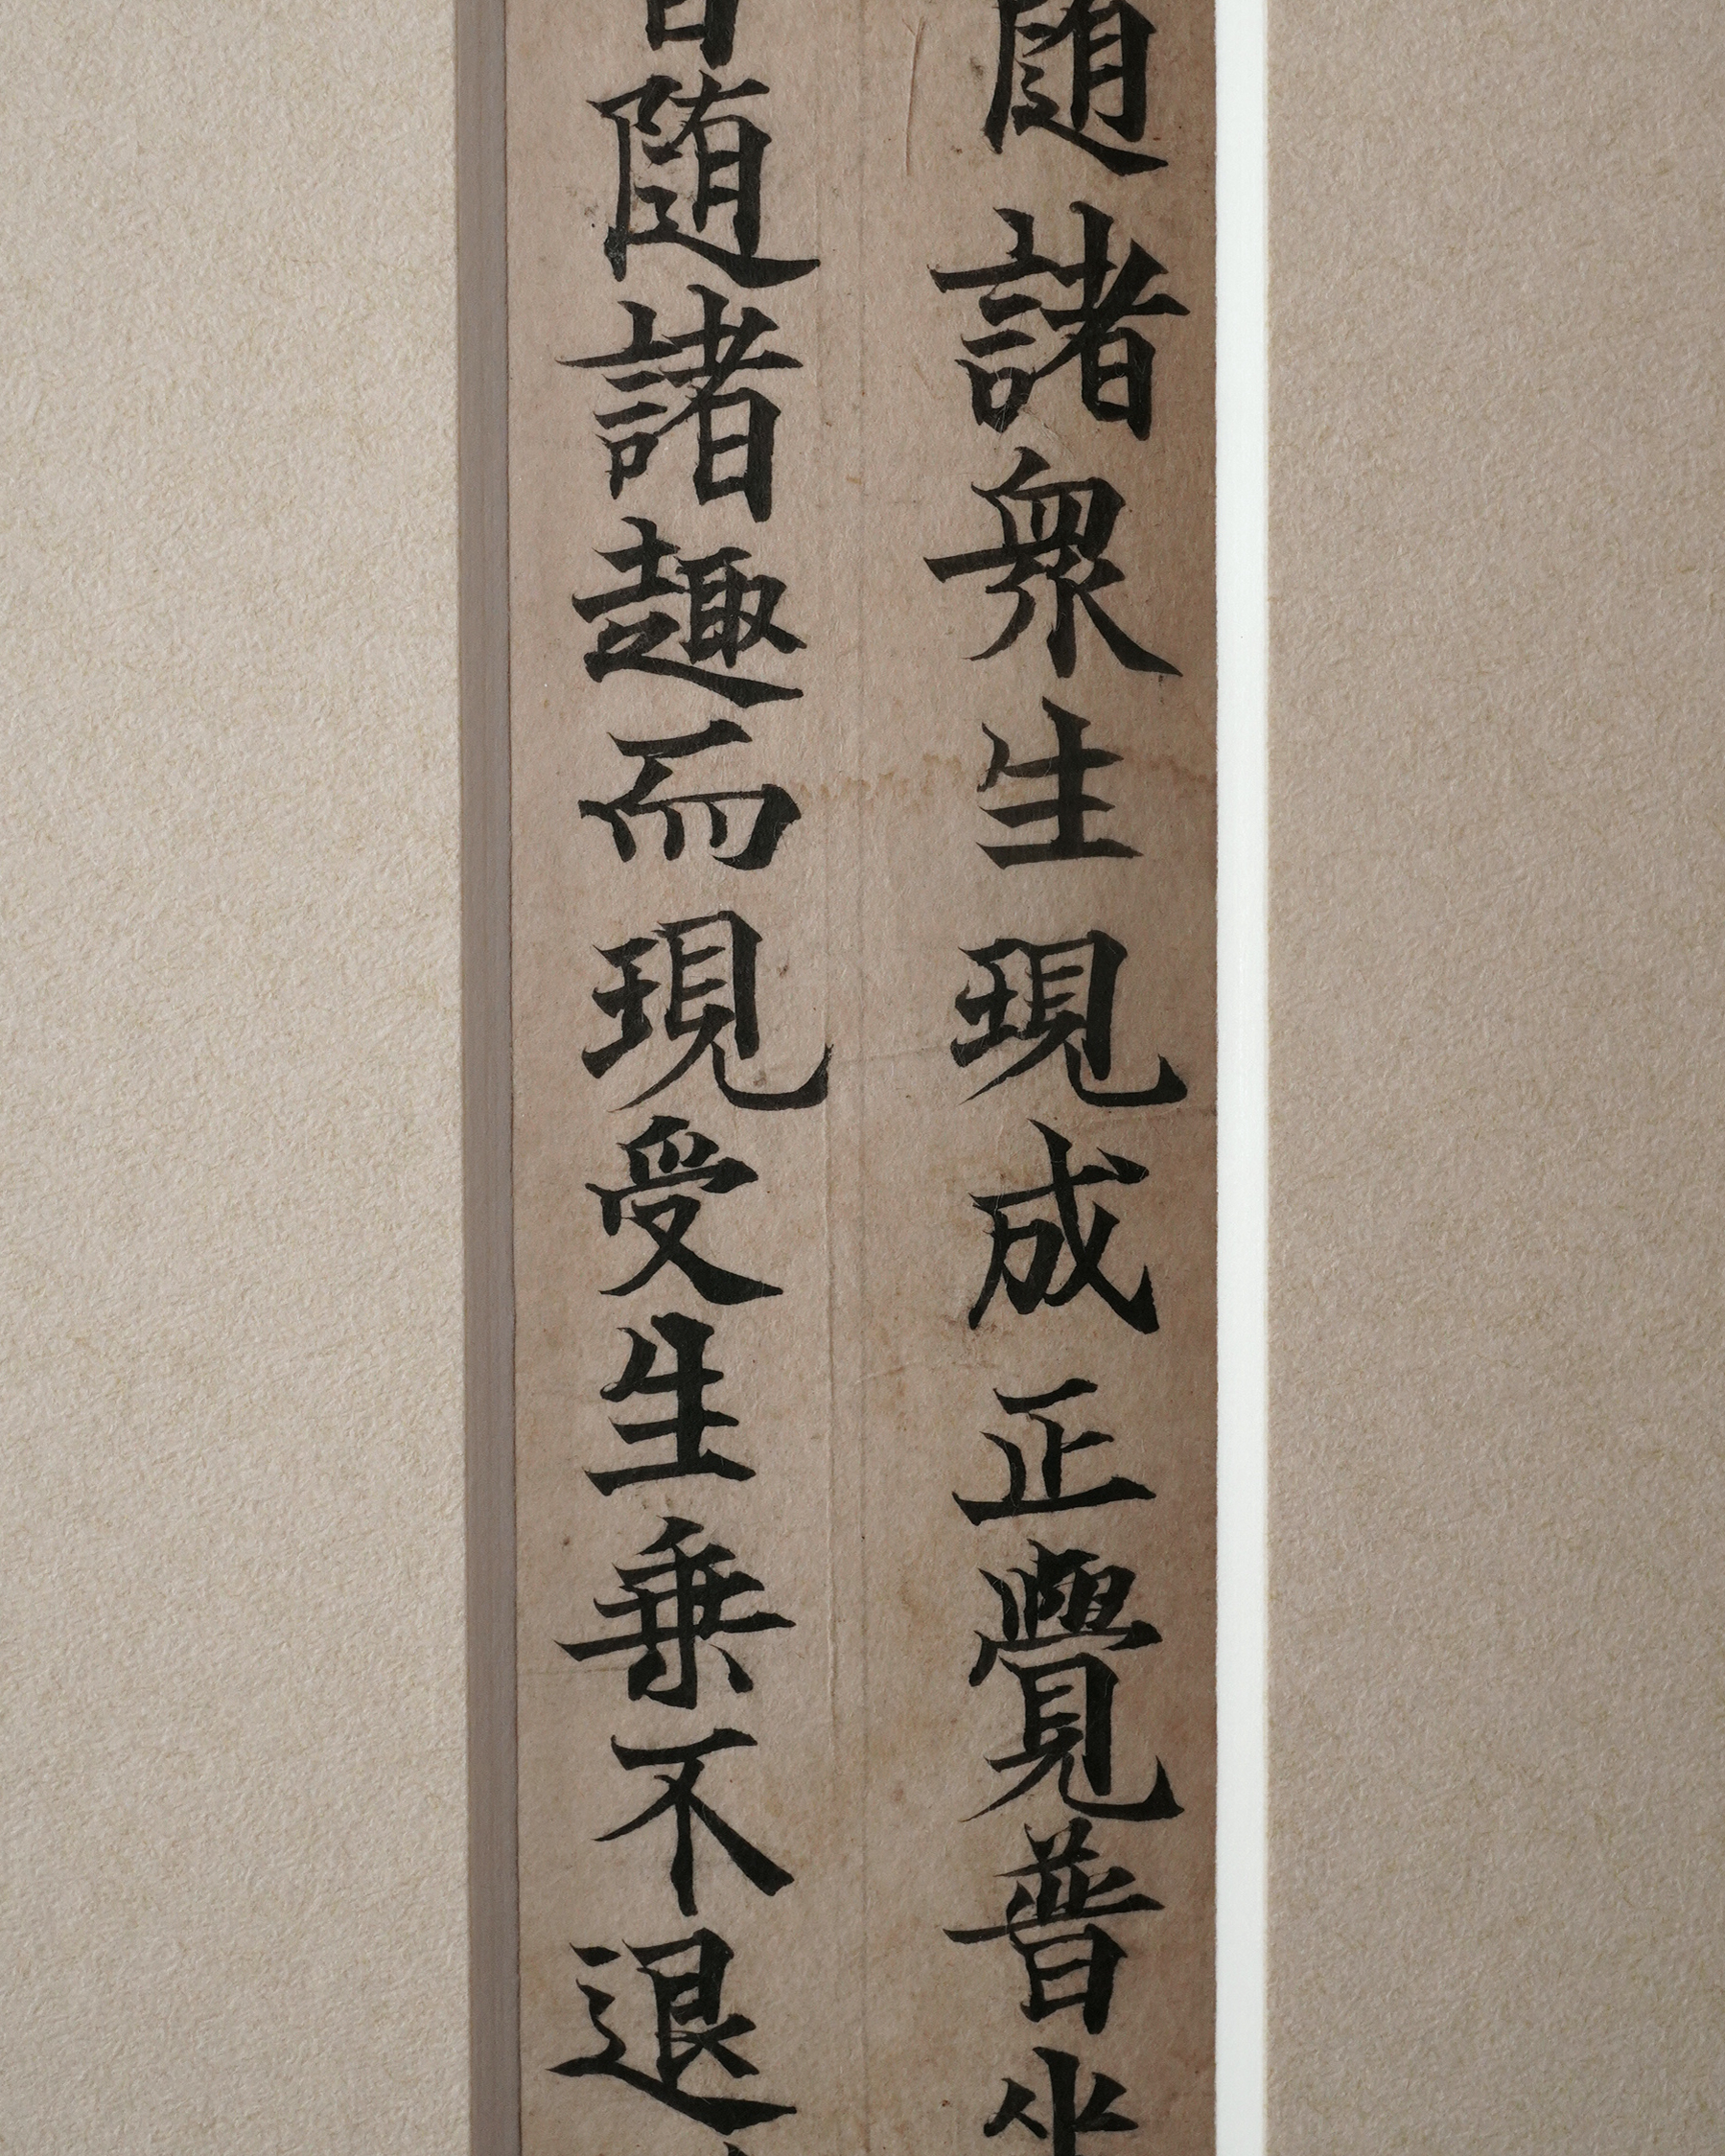 随諸衆生現成正覺普坐
随諸趣而現受生乗不退